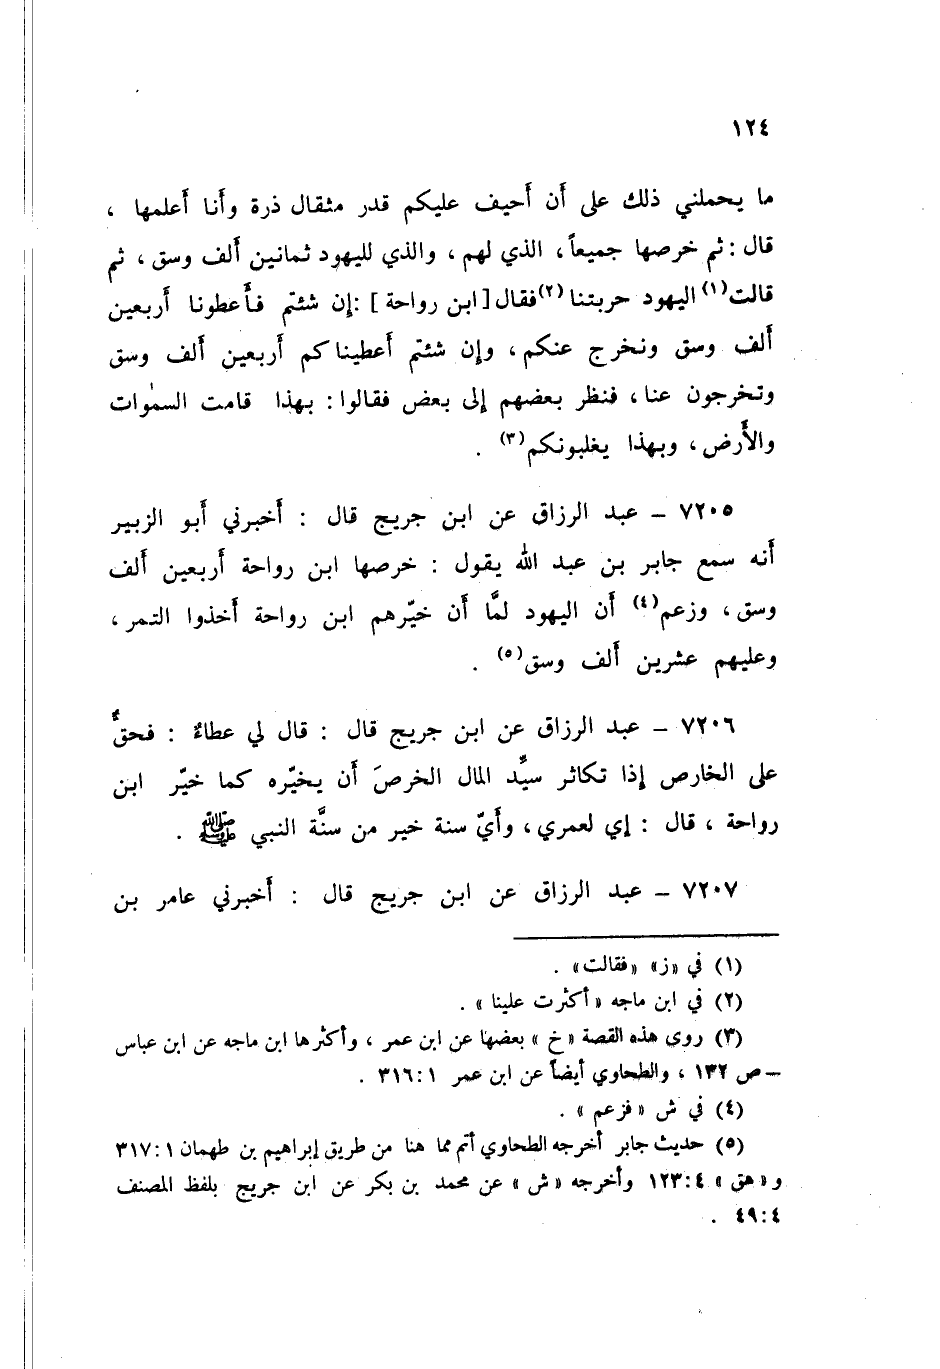 ١٢٤
ما يحملني ذلك على أن أحيف عليكم قدر مثقال ذرة وأنا أعلمها ،
قال : ثم خرصها جميعاً ، الذي لهم ، والذي لليهود ثمانين ألف وسق ، ثم
قالت(١) اليهود حربتنا (٢)فقال [ ابن رواحة ] : إن شئتم فأعطونا أربعين
ألف وسق ونخرج عنكم ، وإن شئتم أعطيناكم أربعين ألف وسق
وتخرجون عنا ، فنظر بعضهم إلى بعض فقالوا : بهذا قامت السمٰوات
والأرض ، وبهذا يغلبونكم(٣) .
٧٢٠٥ – عبد الرزاق عن ابن جريج قال : أخبرني أبو الزبير
أنه سمع جابر بن عبد الله يقول : خرصها ابن رواحة أربعين ألف
وسق ، وزعم(٤) أن اليهود لمَّا أن خيّرهم ابن رواحة أخذوا التمر ،
وعليهم عشرين ألف وسق(٥) .
٧٢٠٦ – عبد الرزاق عن ابن جريج قال : قال لي عطاءٌ : فحقٌّ
على الخارص إذا تكاثر سيِّد المال الخرصَ أن يخيّره كما خيّر ابن
رواحة ، قال : إي لعمري ، وأيّ سنة خير من سنَّة النبي ﷺ .
٧٢٠٧ – عبد الرزاق عن ابن جريج قال : أخبرني عامر بن
(١) في «ز» «فقالت» .
(٢) في ابن ماجه « أكثرت علينا » .
(٣) روى هذه القصة « خ » بعضها عن ابن عمر ، وأكثرها ابن ماجه عن ابن عباس
– ص ١٣٢ ، والطحاوي أيضاً عن ابن عمر ١ : ٣١٦ .
(٤) في ش « فزعم » .
(٥) حديث جابر أخرجه الطحاوي أتم مما هنا من طريق إبراهيم بن طهمان ١ : ٣١٧
و « هق » ٤ : ١٢٣ وأخرجه « ش » عن محمد بن بكر عن ابن جريج بلفظ المصنف
٤ : ٤٩ .